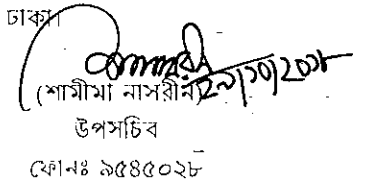 ঢাকা।
২৯/১০/২০১৮
(শামীমা নাসরীন)
উপসচিব
ফোনঃ ৯৫৪৫০২৮